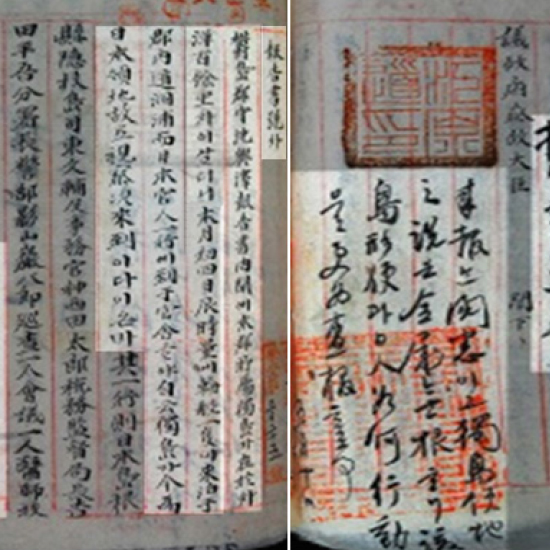 報告書號外
鬱島郡守沈興澤報告書內開에本郡所屬獨島가在於外
洋百餘里外이살더니本月初四日辰時量에輪船一隻이來泊于
郡內道洞浦而日本官人一行이到于官舍ᄒᆞ야自云獨島가今爲
日本領地故로視察次來到이다이온바其一行則日本島根
縣隱技島司東文輔及事務官神西田太郎稅務監督局長吉
田平吾分署長警部影山巖八郎巡査一人會議一人醫師技
議政府參政大臣 閣下
來報는閱悉이고獨島領地
之說은全屬無根ᄒᆞ나該
島形便과日人如何行動
을更爲査報ᄒᆞᆯ事